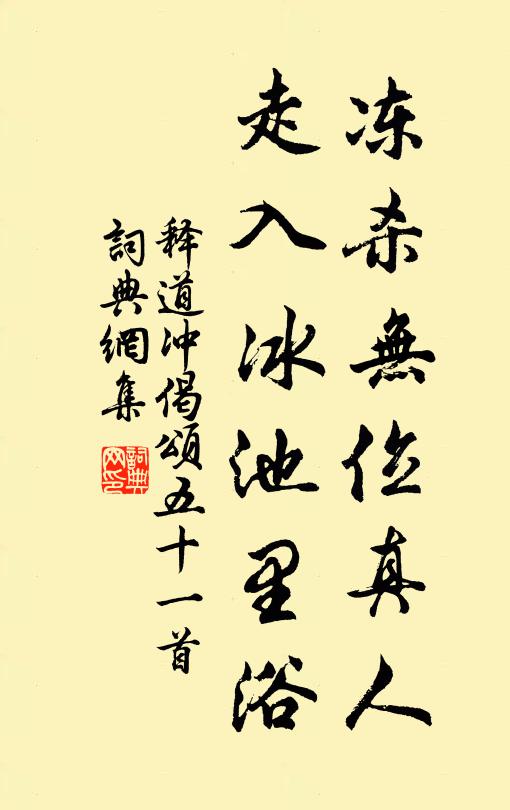 冻杀無位真人
走入冰池里浴
释道冲偈頌五十一首
詞典網集
詞典網印